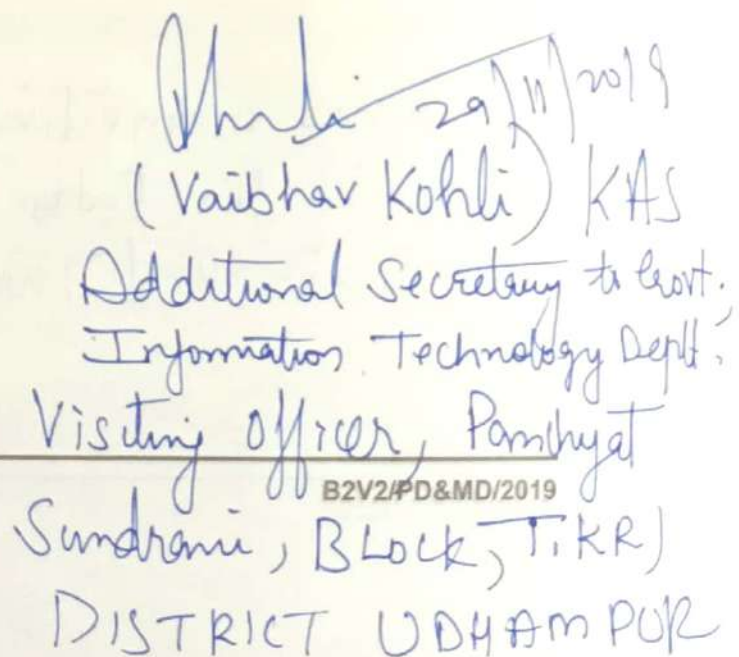 29/11/2019
(Vaibhav Kohli) KAS
Additional Secretary to Govt.
Information Technology Deptt.
Visiting Officer, Panchyat
B2V2/PD&MD/2019
Sundrani, BLock, TiKRI
DISTRICT UDHAMPUR